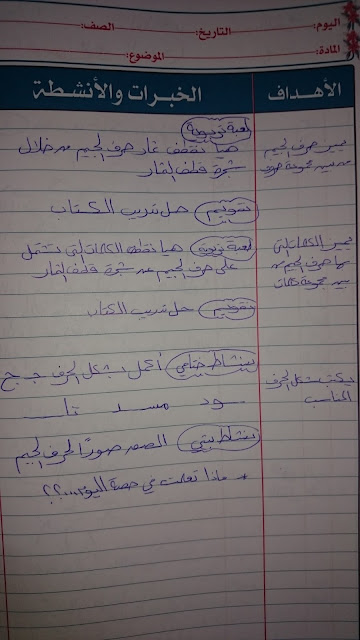 اليوم: التاريخ: الصف:
المادة: الموضوع:
الأهداف
الخبرات والأنشطة
لعبة تربوية
هيا نقطف ثمار حرف الجيم من خلال
شجرة قطف الثمار
يميز حرف الجيم
من بين مجموعة حروف
تقويم حل تدريب الكتاب
يميز الكلمات التي
بها حرف الجيم من
بين مجموعة كلمات
لعبة تربوية هيا نقطف الكلمات التي تشتمل
على حرف الجيم من شجرة قطف الثمار
تقويم حل تدريب الكتاب
يكتب شكل الحرف
المناسب
نشاط ختامي أكمل بشكل الحرف جـ ج
ـود مسـد تا
نشاط بيتي الصق صورًا لحرف الجيم
* ماذا تعلمت في حصة اليوم....؟؟